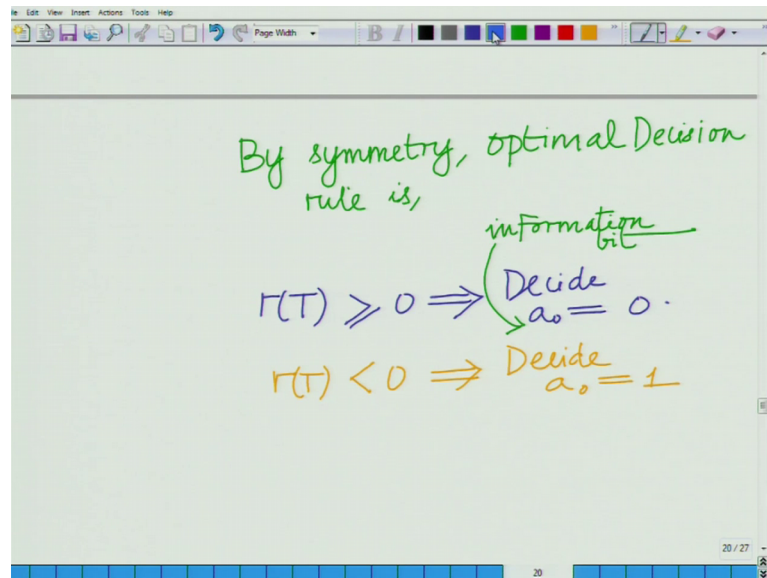 le Edit View Insert Actions Tools Help
Page Width
B I
By symmetry, optimal Decision
rule is,
information
bit
r(T) ⩾ 0 ⟹ Decide
a₀ = 0.
r(T) < 0 ⟹ Decide
a₀ = 1
20 / 27
20